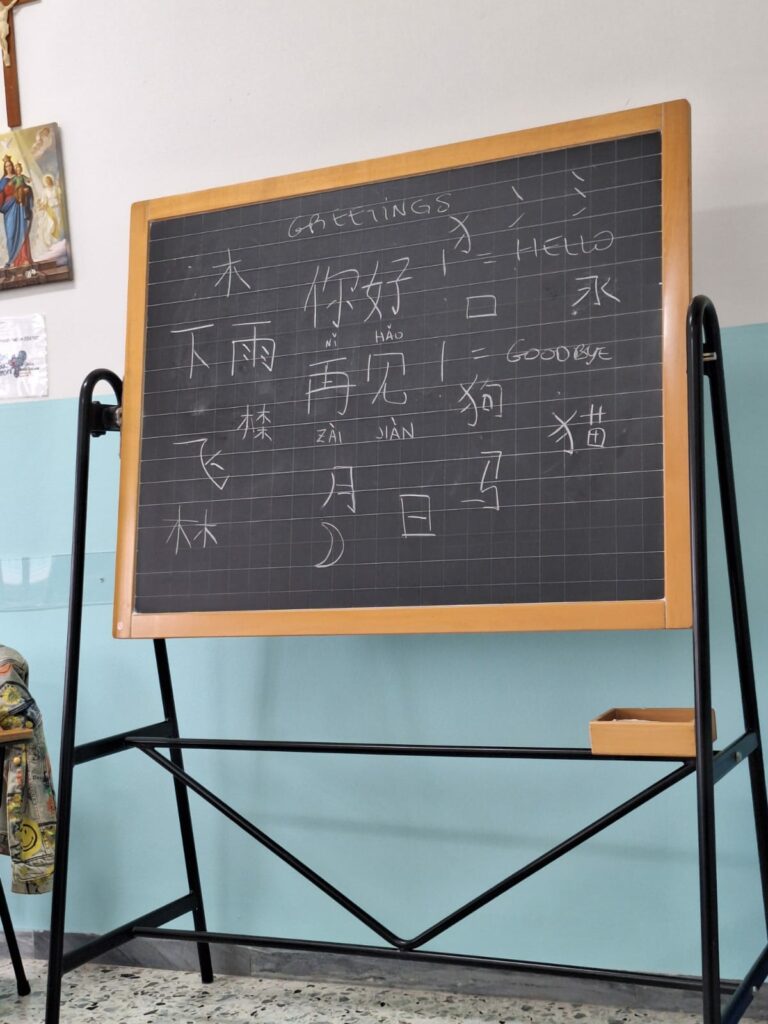 GREETINGS
木
你好 = HELLO
NǏ HǍO
下雨
口
永
再见 = GOODBYE
ZÀI JIÀN
狗
猫
飞
月
日
马
林